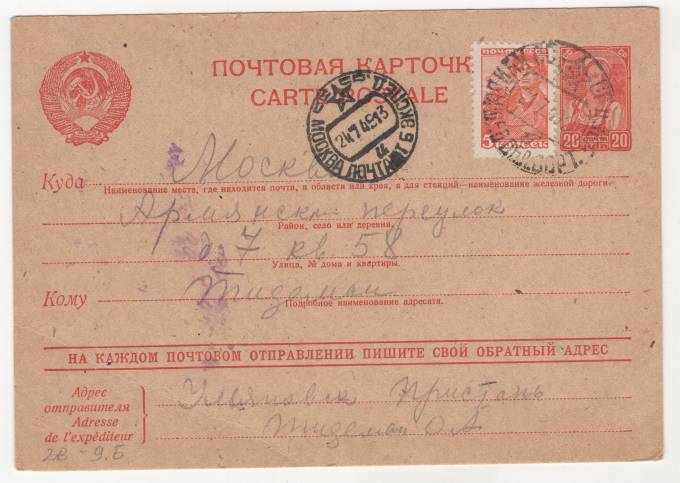 ПОЧТОВАЯ КАРТОЧКА
CARTE POSTALE
ПОЧТА СССР
5 КОПЕЕК
20 20
МОСКВА ПОЧТАМТ
24.7.49 13
Куда Москва
Наименование места, где находится почта, и области или края, а для станций—наименование железной дороги
Армянский переулок
Район, село или деревня
д 7 кв 58
Улица, № дома и квартиры.
Кому Тидеман
Подробное наименование адресата.
НА КАЖДОМ ПОЧТОВОМ ОТПРАВЛЕНИИ ПИШИТЕ СВОЙ ОБРАТНЫЙ АДРЕС
Адрес отправителя
Adresse de l'expéditeur
Ульяновск Пристань
Тидеман О.А
2в - 9.Б